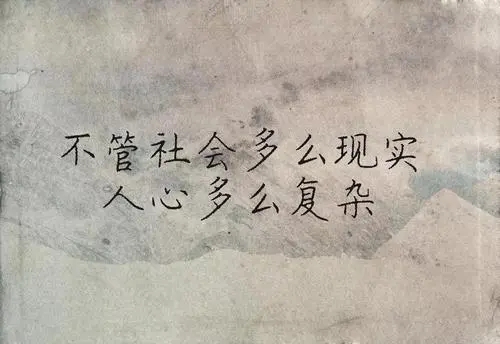 不管社会多么现实
人心多么复杂